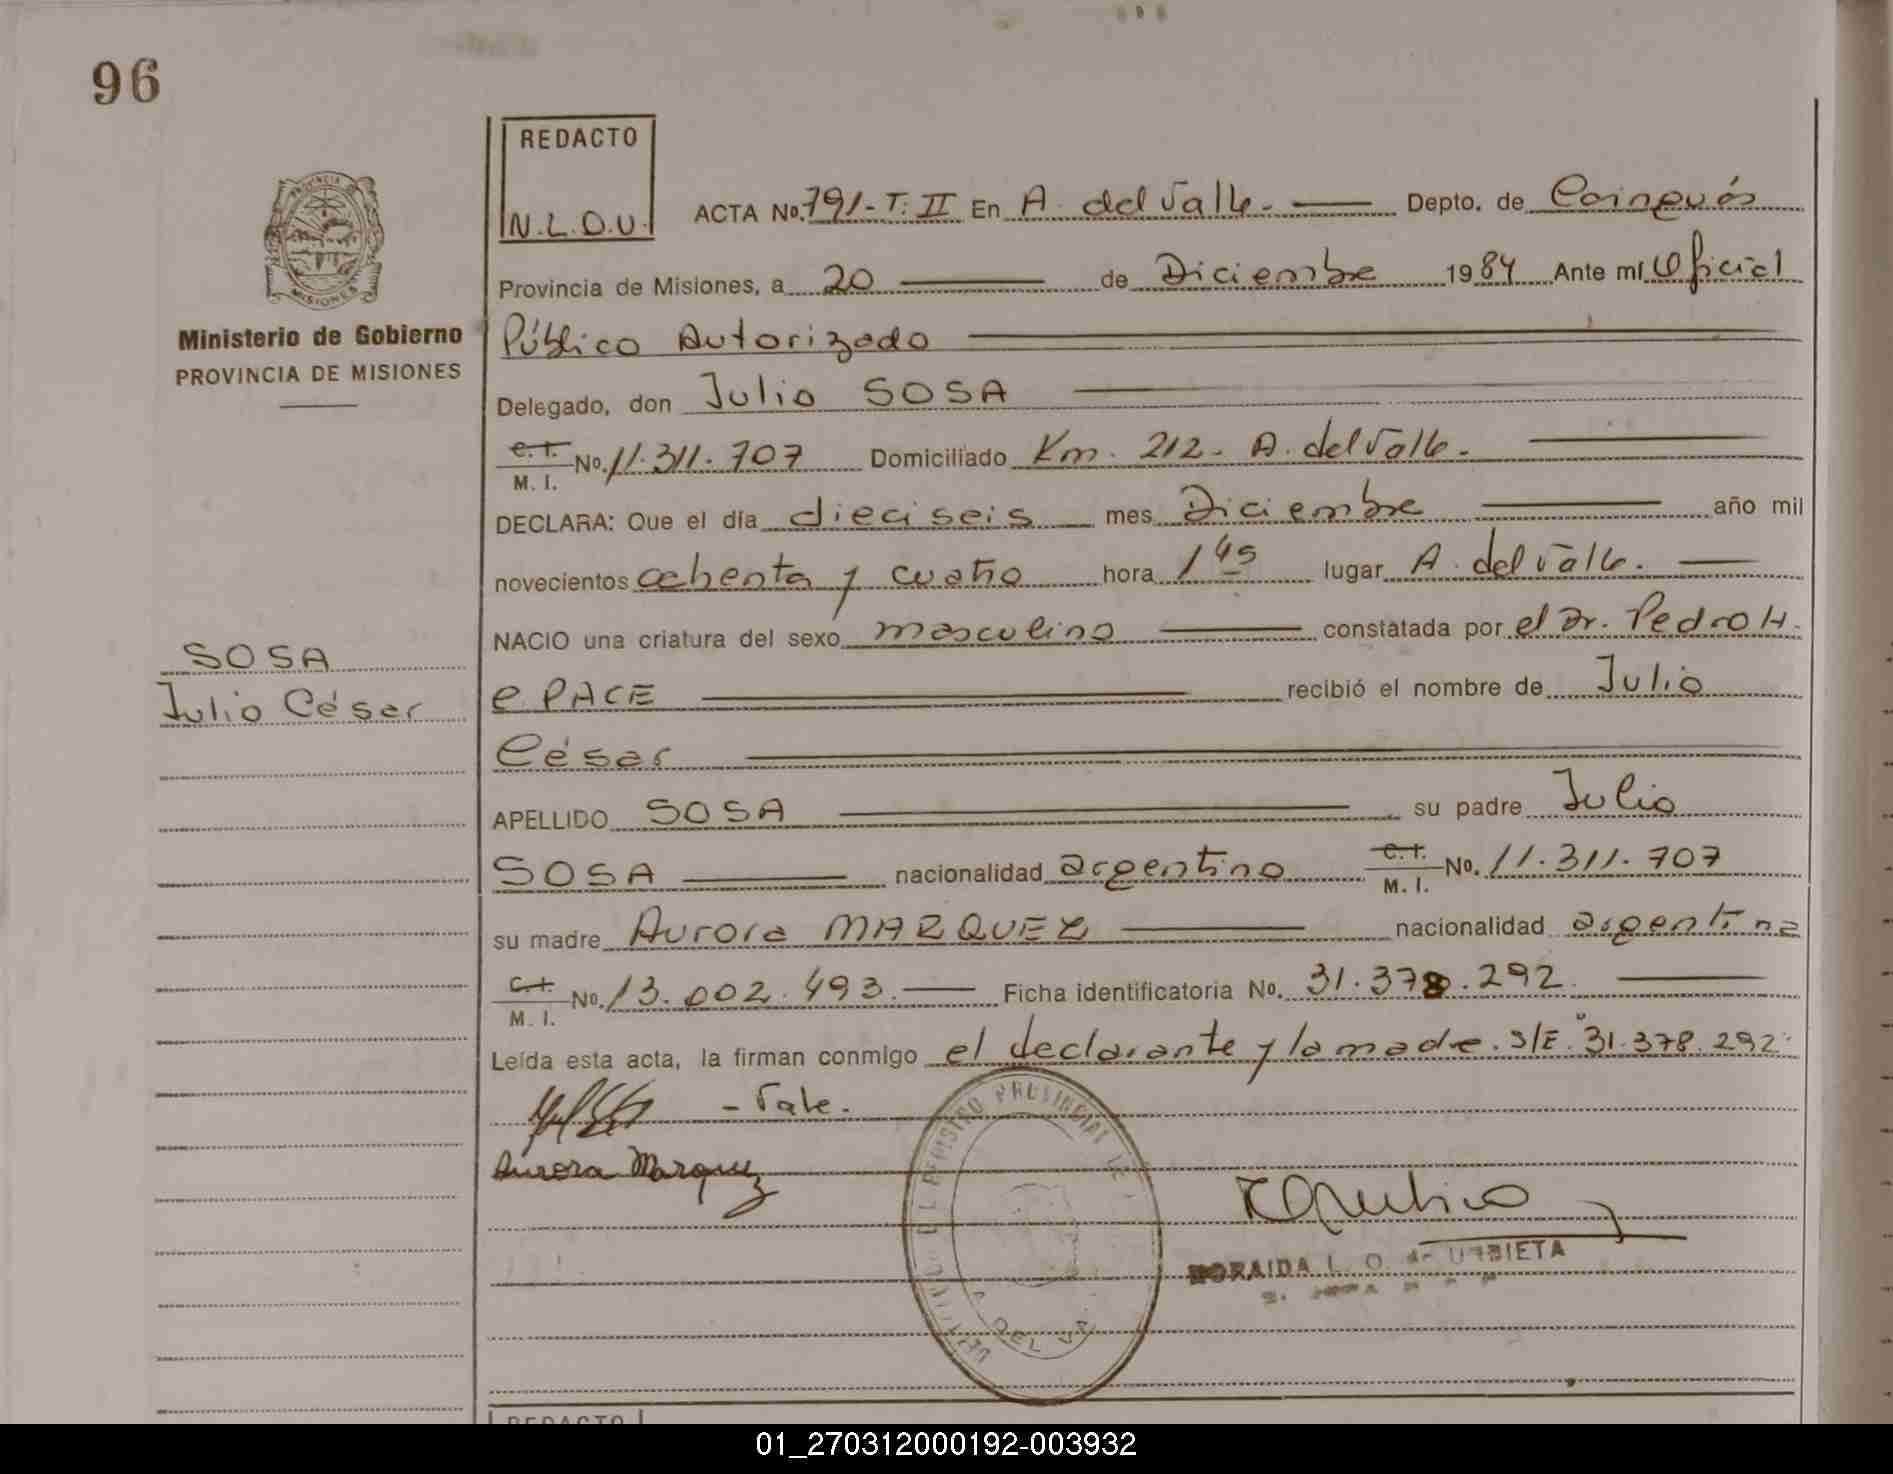 96
REDACTO
N.L.O.U.
ACTA No. 791- T: II En A. del Valle. Depto. de Cainguás
Provincia de Misiones, a 20 de Diciembre 1984 Ante mí Oficial
Público Autorizado
Delegado, don Julio SOSA
C.I. M. I. No. 11.311.707 Domiciliado Km. 212. A. del Valle.
DECLARA: Que el día dieciseis mes Diciembre año mil
novecientos ochenta y cuatro hora 1 45 lugar A. del Valle.
NACIO una criatura del sexo masculino constatada por el Dr. Pedro H.
e PACE recibió el nombre de Julio
César
APELLIDO SOSA su padre Julio
SOSA nacionalidad argentino C.I. M. I. No. 11.311.707
su madre Aurora MARQUEZ nacionalidad argentina
C.I. M. I. No. 13.002.493. Ficha identificatoria No. 31.378.292.
Leída esta acta, la firman conmigo el declarante y la madre. S/E. "31.378.292"
- Vale.
Aurora Marquez
PROVINCIA
MISIONES
Ministerio de Gobierno
PROVINCIA DE MISIONES
SOSA
Julio César
REGISTRO PROVINCIAL DE
A. DEL VA
L. O. URBIETA
REDACTO
01_270312000192-003932